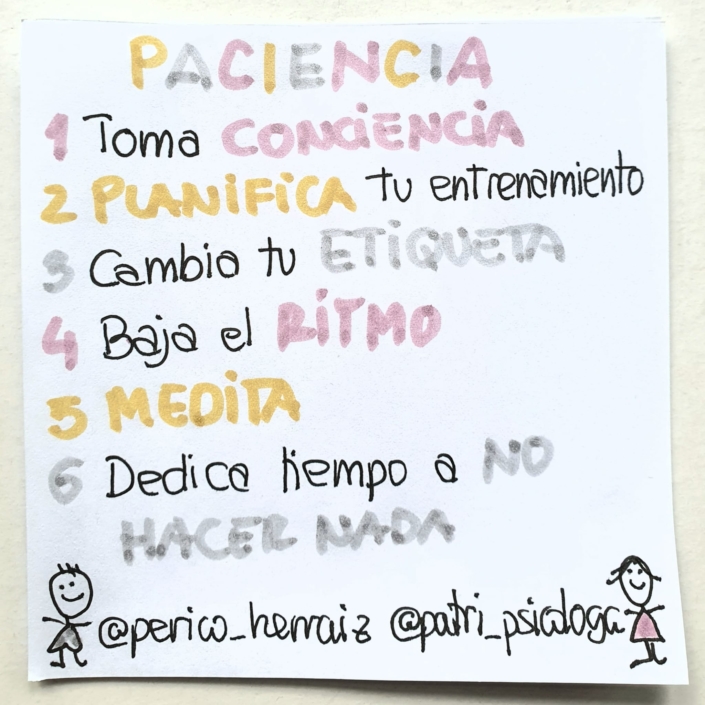 PACIENCIA
1 Toma CONCIENCIA
2 PLANIFICA tu entrenamiento
3 Cambia tu ETIQUETA
4 Baja el RITMO
5 MEDITA
6 Dedica tiempo a NO
HACER NADA
@perico_herraiz @patri_psicologa